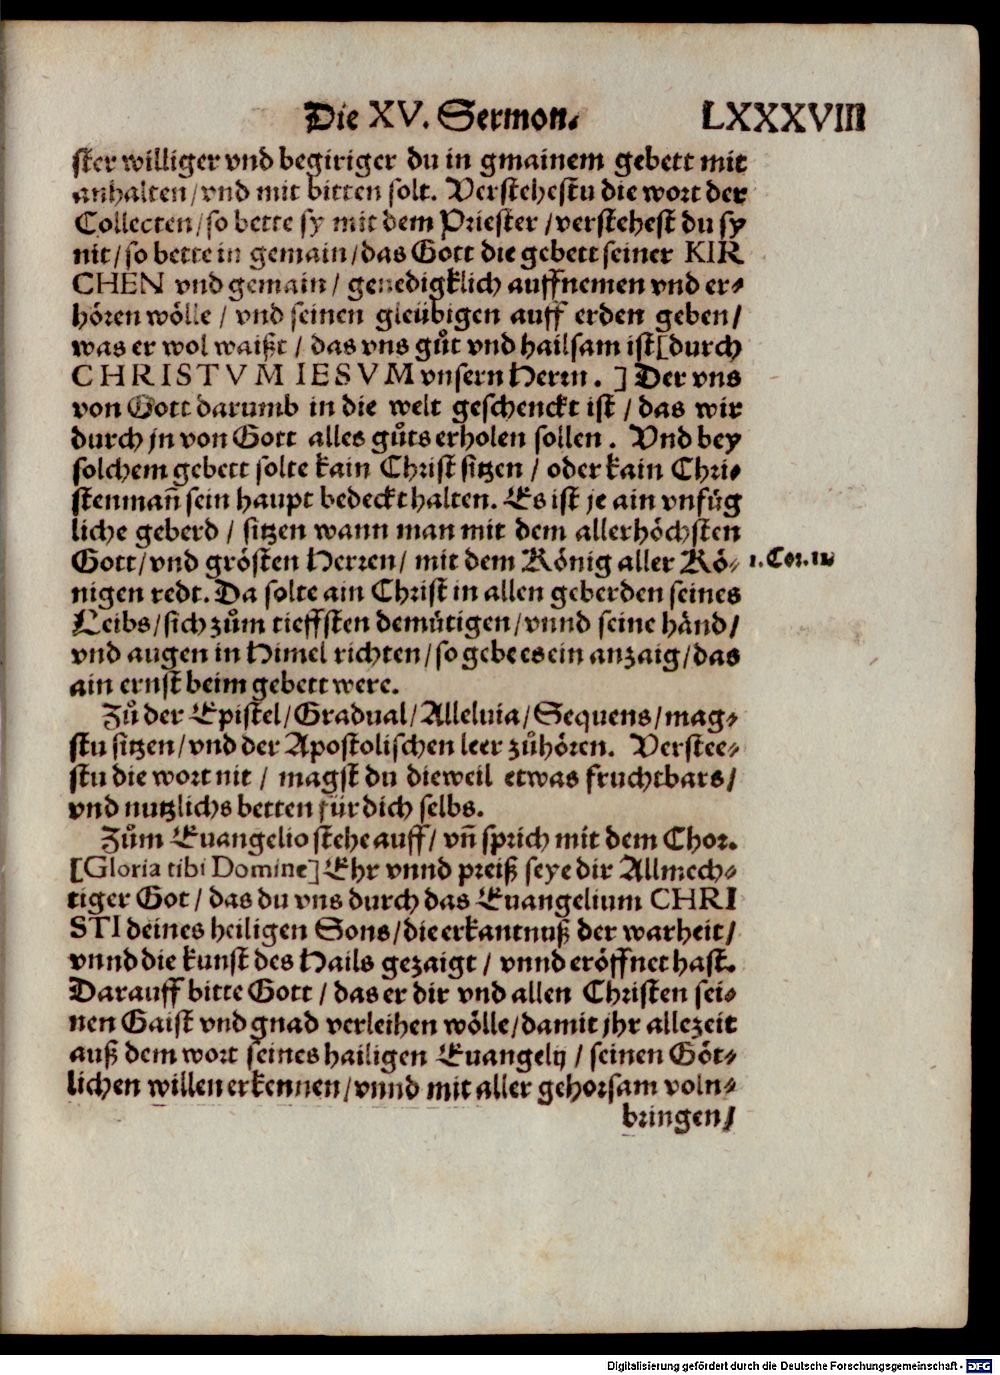 Die XV. Sermon. LXXXVIII
ster williger vnd begiriger du in gmainem gebett mit
anhalten/vnd mit bitten solt. Verstehestu die wort der
Collecten/so bette sy mit dem Priester/verstehest du sy
nit/so bette in gemain/das Gott die gebett seiner KIR
CHEN vnd gemain/ genedigklich auffnemen vnd er-
hören wölle/ vnd seinen gleübigen auff erden geben/
was er wol waißt/ das vns gůt vnd hailsam ist[durch
CHRISTVM IESVM vnsern Herrn.] Der vns
von Gott darumb in die welt geschenckt ist/das wir
durch jn von Gott alles gůts erholen sollen. Vnd bey
solchem gebett solte kain Christ sitzen/ oder kain Chri-
stenmañ sein haupt bedeckt halten. Es ist je ain vnfüg
liche geberd/ sitzen wann man mit dem allerhöchsten
Gott/vnd grösten Herren/ mit dem König aller Kö- 1.Cor.11.
nigen redt. Da solte ain Christ in allen geberden seines
Leibs/sich zům tieffsten demütigen/vnnd seine händ/
vnd augen in Himel richten/so gebe es ein anzaig/das
ain ernst beim gebett were.
Zů der Epistel/Gradual/Alleluia/Sequens/mag-
stu sitzen/vnd der Apostolischen leer zůhören. Verstee-
stu die wort nit/ magst du dieweil etwas fruchtbars/
vnd nutzlichs betten für dich selbs.
Zům Euangelio stehe auff/ vñ sprich mit dem Chor.
[Gloria tibi Domine] Ehr vnnd preiß seye dir Allmech-
tiger Got/ das du vns durch das Euangelium CHRI
STI deines heiligen Sons/die erkantnuß der warheit/
vnnd die kunst des Hails gezaigt/ vnnd eröffnet hast.
Darauff bitte Gott/ das er dir vnd allen Christen sei-
nen Gaist vnd gnad verleihen wölle/damit jhr allezeit
auß dem wort seines hailigen Euangelij/ seinen Göt-
lichen willen erkennen/vnnd mit aller gehorsam voln-
bringen/
Digitalisierung gefördert durch die Deutsche Forschungsgemeinschaft - DFG